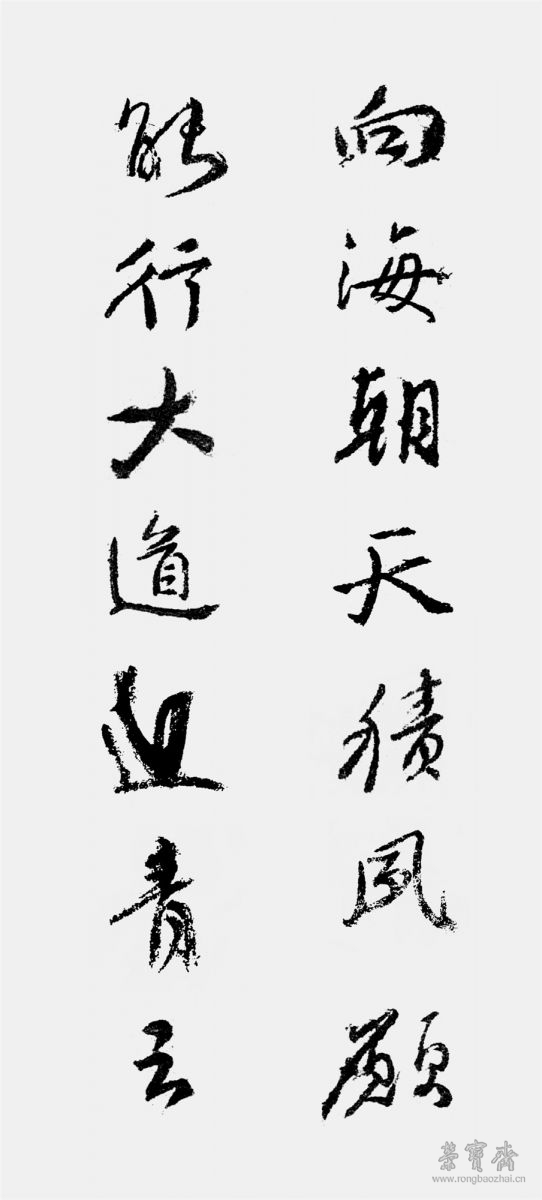 向海朝天積夙願
能行大道迎青云
榮寶齋
www.rongbaozhai.cn